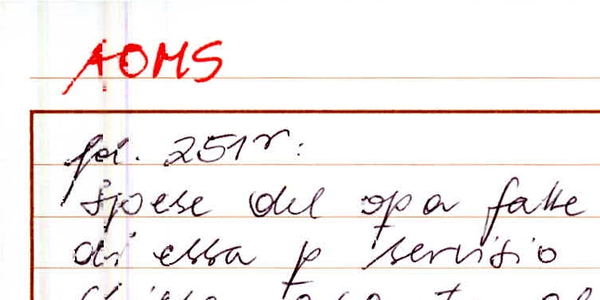 AOMS
fol. 251r:
Spese del opa fatte
di essa p servisio